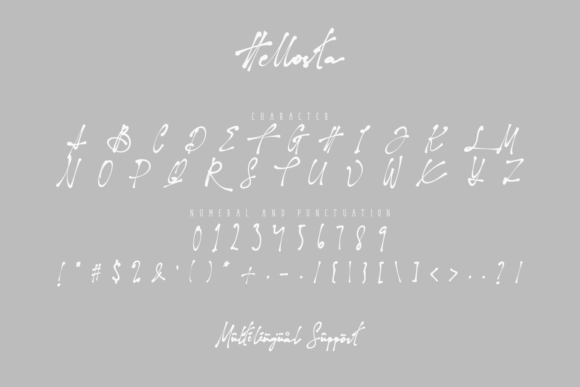 Hellosta
CHARACTER
A B C D E F G H I J K L M
N O P Q R S T U V W X Y Z
NUMERAL AND PUNCTUATION
0 1 2 3 4 5 6 7 8 9
! " # $ 2 & ' ( ) * + . - . / { | } [ \ ] < > . . ? /
Mültïlïngüål Süppört